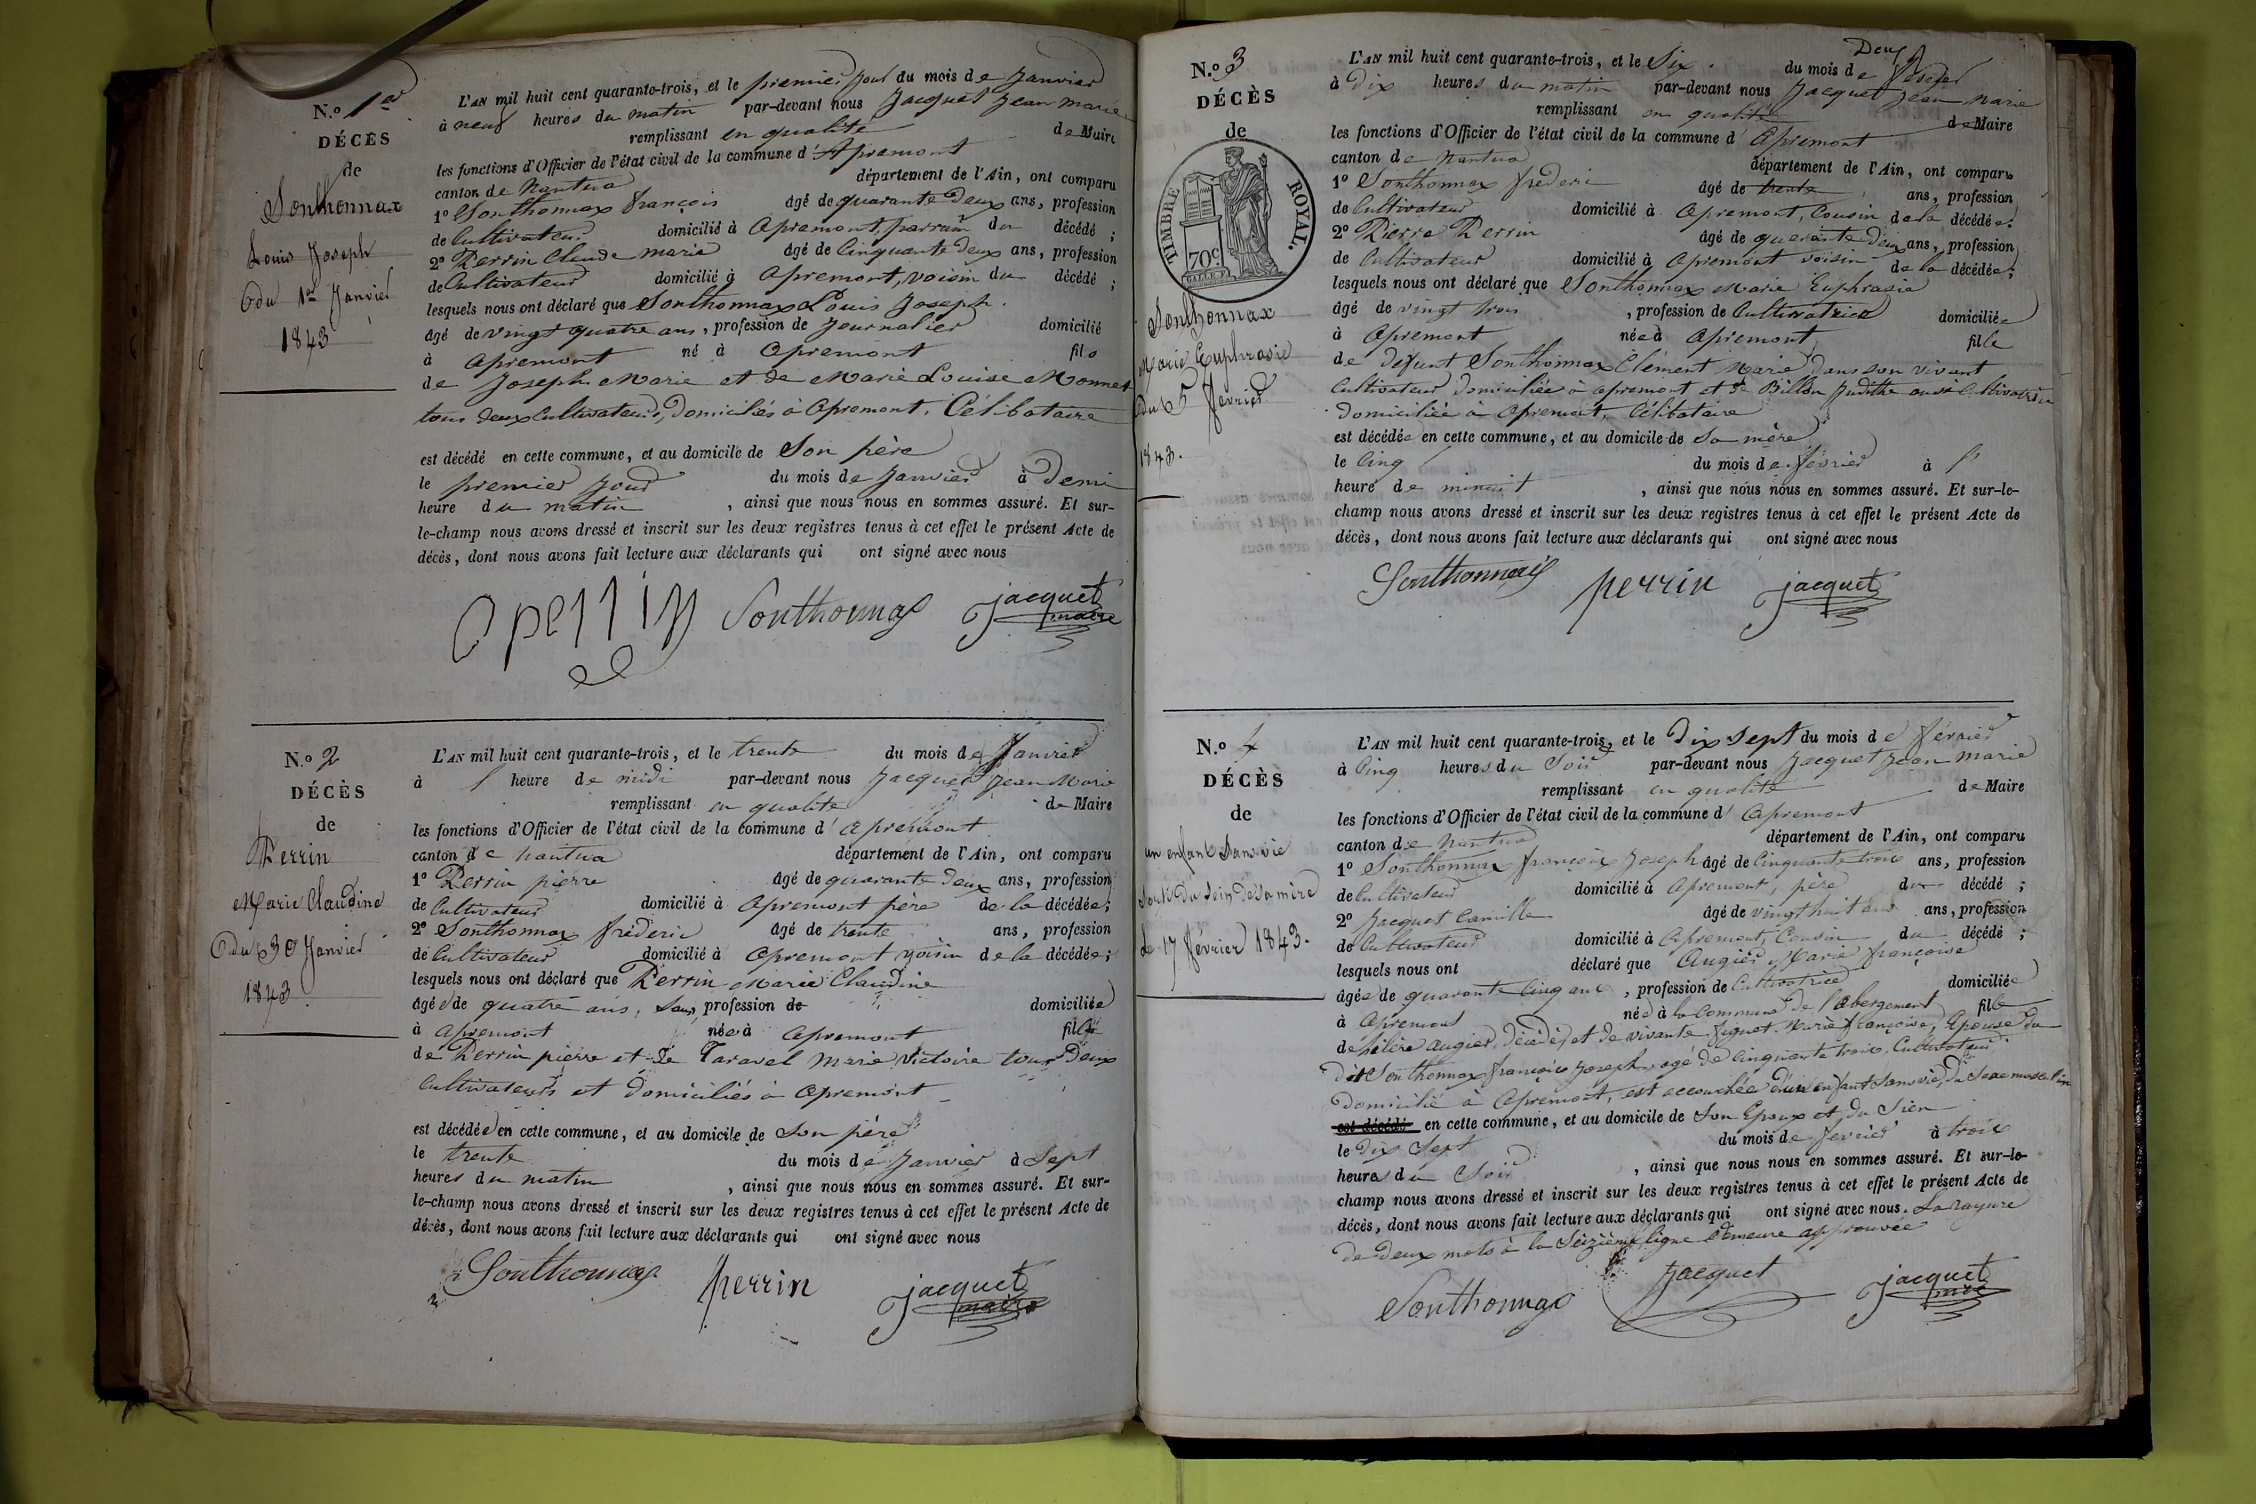 N.o 1er
DÉCÈS
de
Sonthonnax
Louis Joseph
du 1er Janvier
1843
L'AN mil huit cent quarante-trois, et le premier jour du mois de Janvier
à neuf heures du matin par-devant nous Jacquet Jean Marie
remplissant en qualité de Maire
les fonctions d'Officier de l'état civil de la commune d'Apremont
canton de Nantua département de l'Ain, ont comparu
1° Sonthonnax françois âgé de quarante Deux ans, profession
de Cultivateur domicilié à Apremont, parrain du décédé ;
2° Perrin Claude marie âgé de Cinquante deux ans, profession
de Cultivateur domicilié à Apremont, voisin du décédé ;
lesquels nous ont déclaré que Sonthonnax Louis Joseph
âgé de vingt quatre ans, profession de Journalier domicilié
à Apremont né à Apremont fils
de Joseph Marie et de Marie Louise Monnet
tous deux Cultivateurs, Domiciliés à Apremont. Célibataire
est décédé en cette commune, et au domicile de Son père
le premier jour du mois de Janvier à Demi
heure du matin, ainsi que nous nous en sommes assuré. Et sur-
le-champ nous avons dressé et inscrit sur les deux registres tenus à cet effet le présent Acte de
décès, dont nous avons fait lecture aux déclarants qui ont signé avec nous
perrin Sonthonnax jacquet
maire
N.o 2
DÉCÈS
de
Perrin
Marie Claudine
du 30 Janvier
1843
L'AN mil huit cent quarante-trois, et le trente du mois de Janvier
à 1 heure de midi par-devant nous Jacquet Jean Marie
remplissant en qualité de Maire
les fonctions d'Officier de l'état civil de la commune d'apremont
canton de nantua département de l'Ain, ont comparu
1° Perrin pierre âgé de quarante Deux ans, profession
de Cultivateur domicilié à Apremont père de la décédée ;
2° Sonthonnax frédéric âgé de trente ans, profession
de Cultivateur domicilié à Apremont voisin de la décédée ;
lesquels nous ont déclaré que Perrin Marie Claudine
âgée de quatre ans, sans profession de domiciliée
à apremont née à apremont fille
de Perrin pierre et de Taravel Marie Victoire tous Deux
Cultivateurs et Domiciliés à Apremont
est décédée en cette commune, et au domicile de Son père
le trente du mois de Janvier à Sept
heures du matin, ainsi que nous nous en sommes assuré. Et sur-
le-champ nous avons dressé et inscrit sur les deux registres tenus à cet effet le présent Acte de
décès, dont nous avons fait lecture aux déclarants qui ont signé avec nous
Sonthonnax perrin jacquet
maire
N.o 3
DÉCÈS
de
TIMBRE ROYAL.
70c
Sonthonnax
Marie Euphrasie
du 5 février
1843.
Deux
L'AN mil huit cent quarante-trois, et le Six du mois de février
à Dix heures du matin par-devant nous Jacquet Jean Marie
remplissant en qualité de Maire
les fonctions d'Officier de l'état civil de la commune d'Apremont
canton de Nantua département de l'Ain, ont comparu
1° Sonthonnax frédéric âgé de trente ans, profession
de Cultivateur domicilié à Apremont, Cousin de la décédée.
2° Pierre Perrin âgé de quarante deux ans, profession
de Cultivateur domicilié à Apremont voisin de la décédée ;
lesquels nous ont déclaré que Sonthonnax Marie Euphrasie
âgé de vingt trois, profession de Cultivatrice domiciliée
à Apremont née à Apremont fille
de défunt Sonthonnax Clément Marie Dans son vivant
Cultivateur Domiciliée à apremont et de Billon Judithe aussi Cultivatrice
Domiciliée à Apremont, Célibataire
est décédée en cette commune, et au domicile de Sa mère
le Cinq du mois de février à 1
heure de minuit, ainsi que nous nous en sommes assuré. Et sur-le-
champ nous avons dressé et inscrit sur les deux registres tenus à cet effet le présent Acte de
décès, dont nous avons fait lecture aux déclarants qui ont signé avec nous
Sonthonnax perrin jacquet
N.o 4
DÉCÈS
de
un enfant Sans vie
Sorti du Sein de Sa mère
le 17 février 1843.
L'AN mil huit cent quarante-trois, et le Dix Sept du mois de février
à Cinq heures du Soir par-devant nous Jacquet Jean Marie
remplissant en qualité de Maire
les fonctions d'Officier de l'état civil de la commune d'Apremont
canton de Nantua département de l'Ain, ont comparu
1° Sonthonnax françois Joseph âgé de Cinquante trois ans, profession
de Cultivateur domicilié à Apremont, père du décédé ;
2° Jacquet Camille âgé de vingt huit ans ans, profession
de Cultivateur domicilié à Apremont, Cousin du décédé ;
lesquels nous ont déclaré que Augier Marie françoise
âgée de quarante Cinq ans, profession de Cultivatrice domiciliée
à Apremont née à la Commune de l'abergement fille
de hilère augier, Décédé, et de vivante figuet Marie françoise, Epouse du
Dit Sonthonnax françois Joseph agé de Cinquante trois, Cultivateur
Domicilié à Apremont, est accouchée d'un enfant Sans vie, du Sexe masculin
est décédé en cette commune, et au domicile de Son Epoux et du Sien
le Dix Sept du mois de février à trois
heures du Soir, ainsi que nous nous en sommes assuré. Et sur-le-
champ nous avons dressé et inscrit sur les deux registres tenus à cet effet le présent Acte de
décès, dont nous avons fait lecture aux déclarants qui ont signé avec nous. La rayure
de Deux mots à la Seizième ligne demeure approuvée
Sonthonnax Jacquet jacquet